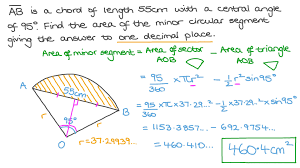 AB is a chord of length 55cm with a central angle
of 95°. Find the area of the minor circular segment
giving the answer to one decimal place.
Area of minor segment = Area of sector - Area of triangle
AOB AOB
= 95/360 × πr² - 1/2 r² sin95°
A
55cm
B
= 95/360 × π × 37.29..² - 1/2 × 37.29..² × sin95°
r
95°
r
= 1153.3857... - 692.9754...
O
r = 37.29939...
= 460.410...
460.4cm²